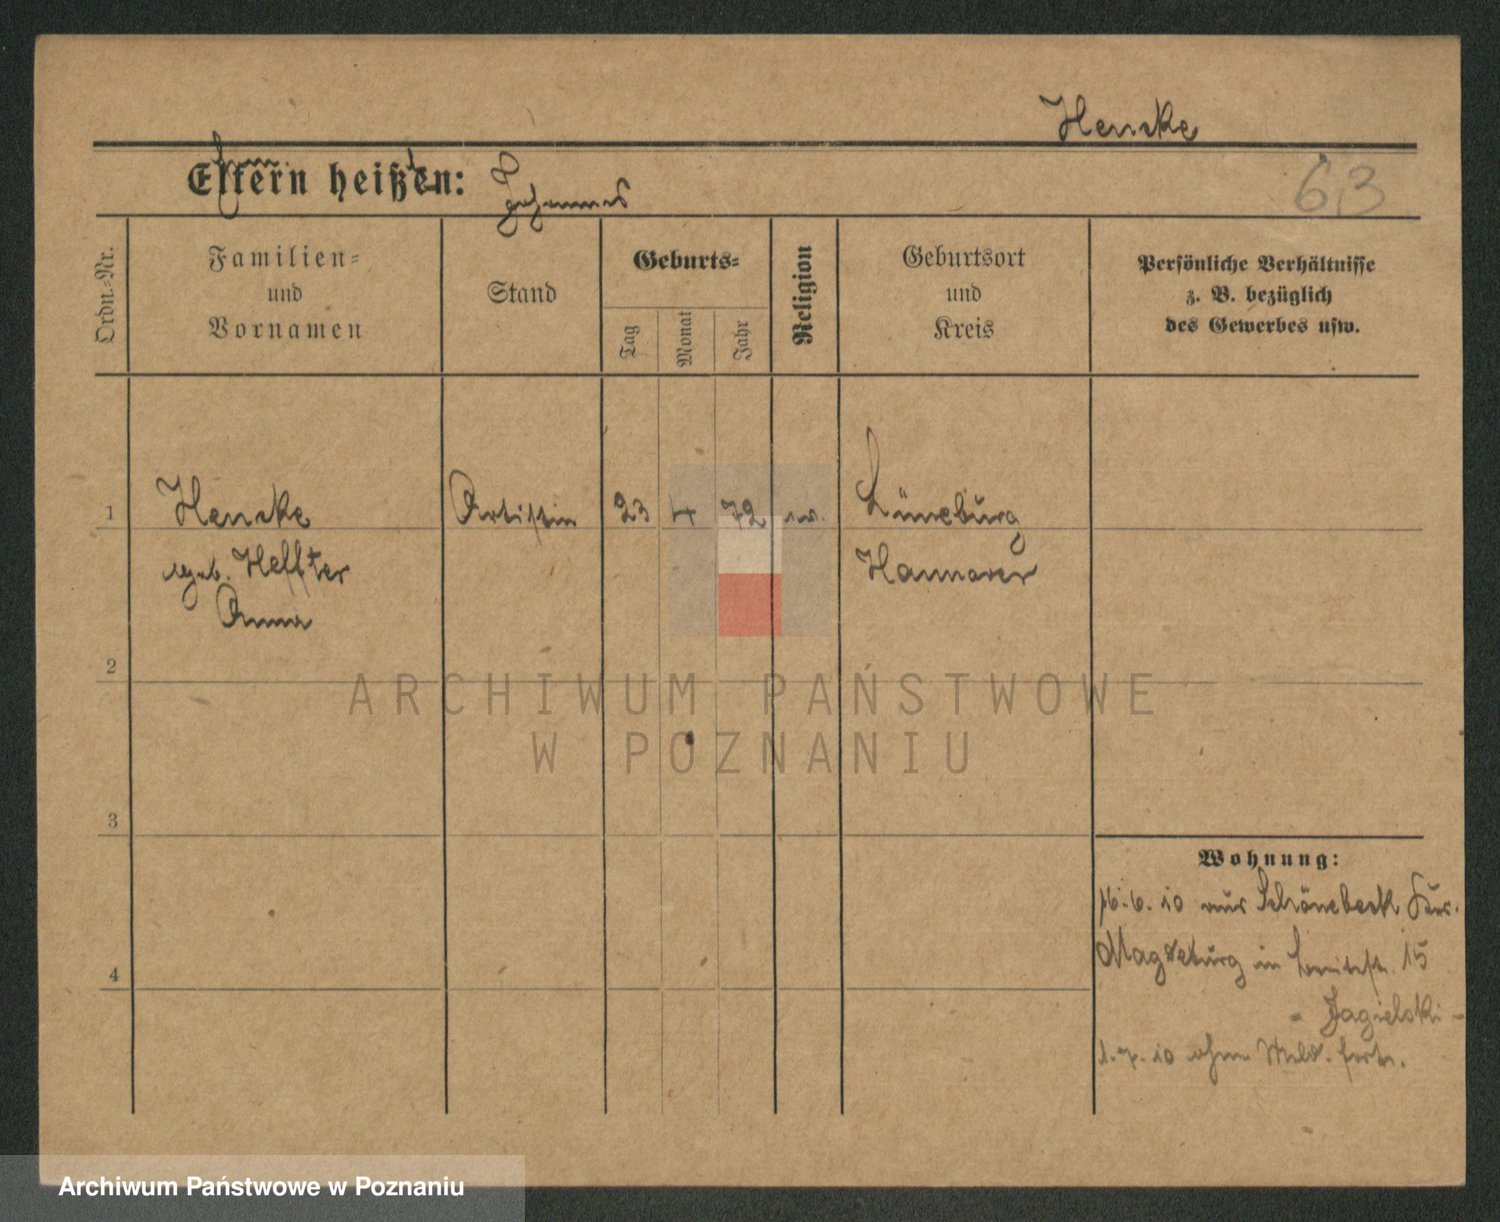 Hencke
Eltern heißen: Johannes
63
Ordn.-Nr.
Familien-
und
Vornamen
Stand
Geburts-
Tag
Monat
Jahr
Religion
Geburtsort
und
Kreis
Persönliche Verhältnisse
z. B. bezüglich
des Gewerbes usw.
1
Hencke
Artistin
23
4
72
ev.
Lüneburg
geb. Heffter
Hannover
Anna
2
ARCHIWUM PAŃSTWOWE
W POZNANIU
3
Wohnung:
16.6.10 aus Schönebeck
Magdeburg in Breitestr. 15
- Jagielski -
4
1.7.10 ohne Meld. forts.
Archiwum Państwowe w Poznaniu